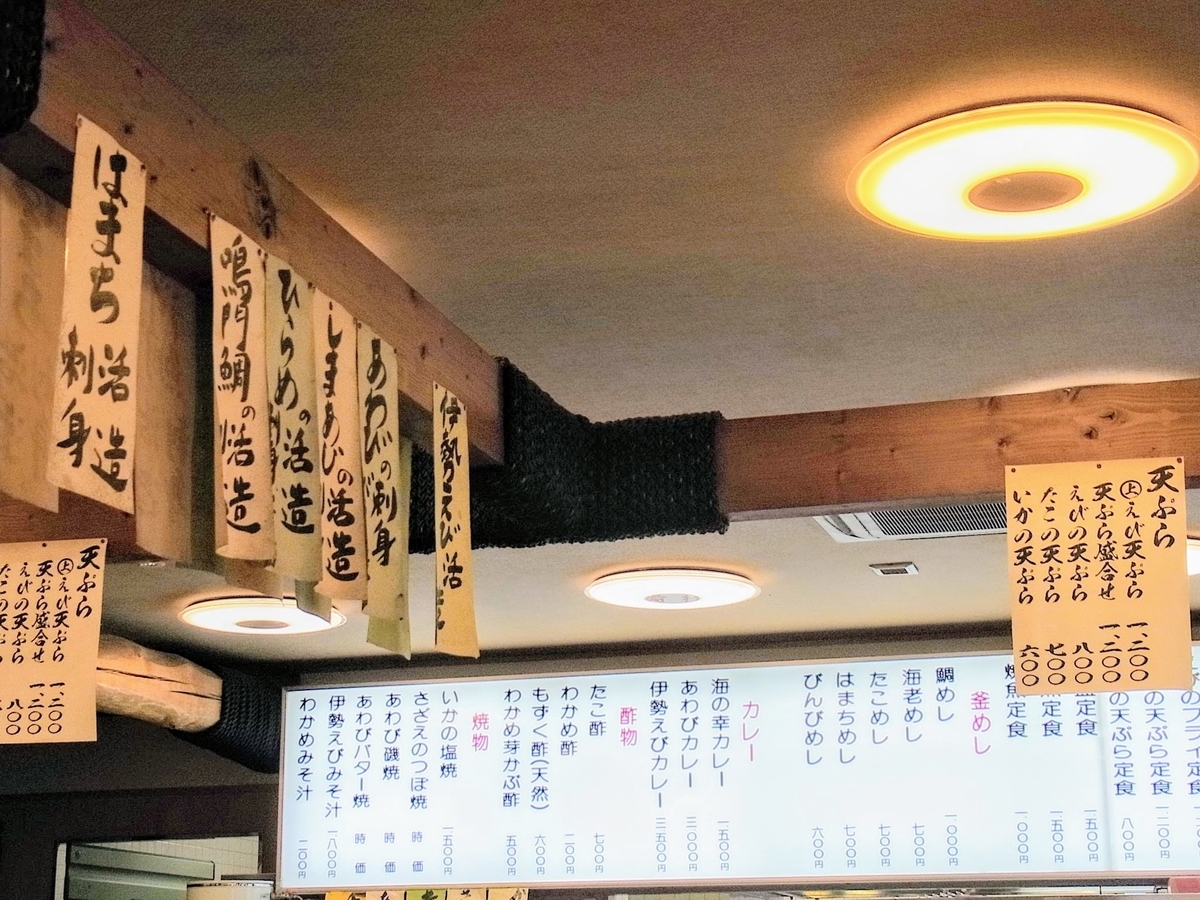 はまち活造
刺身
鳴門鯛の活造
ひらめの活造
しまあじの活造
あわびの刺身
伊勢えび活
天ぷら
㊤えび天ぷら 一、二〇〇
天ぷら盛合せ 一、二〇〇
えびの天ぷら 八〇〇
たこの天ぷら 七〇〇
いかの天ぷら 六〇〇
天ぷら
㊤えび天ぷら 一、二〇〇
天ぷら盛合せ 一、二〇〇
えびの天ぷら 八〇〇
たこの天ぷら
の天ぷら定食 一二〇〇円
の天ぷら定食 八〇〇円
定食 一五〇〇円
定食 一五〇〇円
焼魚定食 一〇〇〇円
釜めし
鯛めし 一〇〇〇円
海老めし 七〇〇円
たこめし 七〇〇円
はまちめし 七〇〇円
びんびめし 六〇〇円
カレー
海の幸カレー 一五〇〇円
あわびカレー 三〇〇〇円
伊勢えびカレー 三五〇〇円
酢物
たこ酢 七〇〇円
わかめ酢 二〇〇円
もずく酢(天然) 六〇〇円
わかめ芽かぶ酢 五〇〇円
焼物
いかの塩焼 一五〇〇円
さざえのつぼ焼 時価
あわび磯焼 時価
あわびバター焼 時価
伊勢えびみそ汁 一八〇〇円
わかめみそ汁 二〇〇円